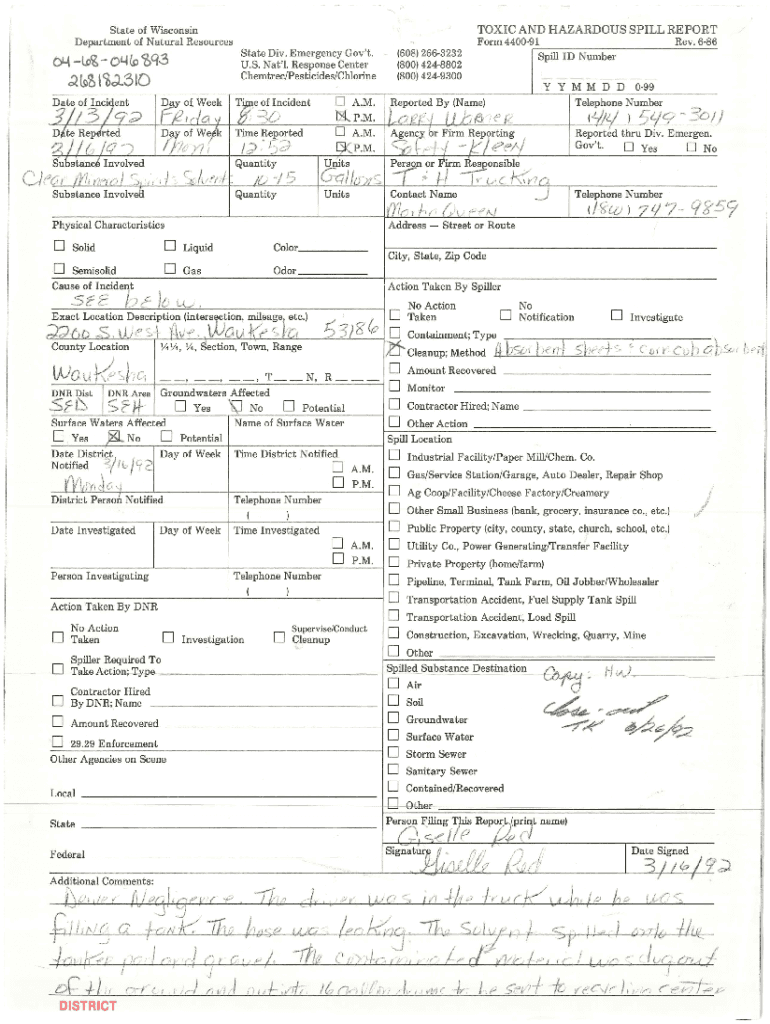 State of Wisconsin
Department of Natural Resources
04-68-046893
268182310
State Div. Emergency Gov't. (608) 266-3232
U.S. Nat'l. Response Center (800) 424-8802
Chemtrec/Pesticides/Chlorine (800) 424-9300
TOXIC AND HAZARDOUS SPILL REPORT
Form 4400-91 Rev. 6-86
Spill ID Number
Y Y M M D D 0-99
Date of Incident Day of Week Time of Incident A.M.
3/13/92 Friday 8:30 P.M.
Date Reported Day of Week Time Reported A.M.
3/16/92 Mon. 12:52 P.M.
Substance Involved Quantity Units
Clear Mineral Spirits Solvent 10-15 Gallons
Substance Involved Quantity Units
Physical Characteristics
Solid Liquid Color
Semisolid Gas Odor
Cause of Incident
SEE below.
Exact Location Description (intersection, mileage, etc.)
2200 S. West Ave., Waukesha 53186
County Location ¼¼, ¼, Section, Town, Range
Waukesha , , , T N, R
DNR Dist DNR Area Groundwaters Affected
SED SEH Yes No Potential
Surface Waters Affected Name of Surface Water
Yes No Potential
Date District Day of Week Time District Notified
Notified 3/16/92 A.M.
Monday P.M.
District Person Notified Telephone Number
( )
Date Investigated Day of Week Time Investigated
A.M.
P.M.
Person Investigating Telephone Number
( )
Action Taken By DNR
No Action Supervise/Conduct
Taken Investigation Cleanup
Spiller Required To
Take Action; Type
Contractor Hired
By DNR; Name
Amount Recovered
29.29 Enforcement
Other Agencies on Scene
Local
State
Federal
Reported By (Name) Telephone Number
Larry (414) 549-3011
Agency or Firm Reporting Reported thru Div. Emergen.
Safety-Kleen Gov't. Yes No
Person or Firm Responsible
T & H Trucking
Contact Name Telephone Number
Martin Queen 747-9859
Address — Street or Route
City, State, Zip Code
Action Taken By Spiller
No Action No
Taken Notification Investigate
Containment; Type
Cleanup; Method Absorbent sheets & corn cob absorbent
Amount Recovered
Monitor
Contractor Hired; Name
Other Action
Spill Location
Industrial Facility/Paper Mill/Chem. Co.
Gas/Service Station/Garage, Auto Dealer, Repair Shop
Ag Coop/Facility/Cheese Factory/Creamery
Other Small Business (bank, grocery, insurance co., etc.)
Public Property (city, county, state, church, school, etc.)
Utility Co., Power Generating/Transfer Facility
Private Property (home/farm)
Pipeline, Terminal, Tank Farm, Oil Jobber/Wholesaler
Transportation Accident, Fuel Supply Tank Spill
Transportation Accident, Load Spill
Construction, Excavation, Wrecking, Quarry, Mine
Other
Spilled Substance Destination
Copy: HW
Air
Soil
close-out
Groundwater
TK 3/26/92
Surface Water
Storm Sewer
Sanitary Sewer
Contained/Recovered
Other
Person Filing This Report (print name)
Giselle Red
Signature Date Signed
Giselle Red 3/16/92
Additional Comments:
Driver Negligence. The driver was in the truck while he was
filling a tank. The hose was leaking. The solvent spilled onto the
tanker pad and gravel. The contaminated material was dug out
of the ground and put into 16 gallon drums to be sent to recycling center
DISTRICT